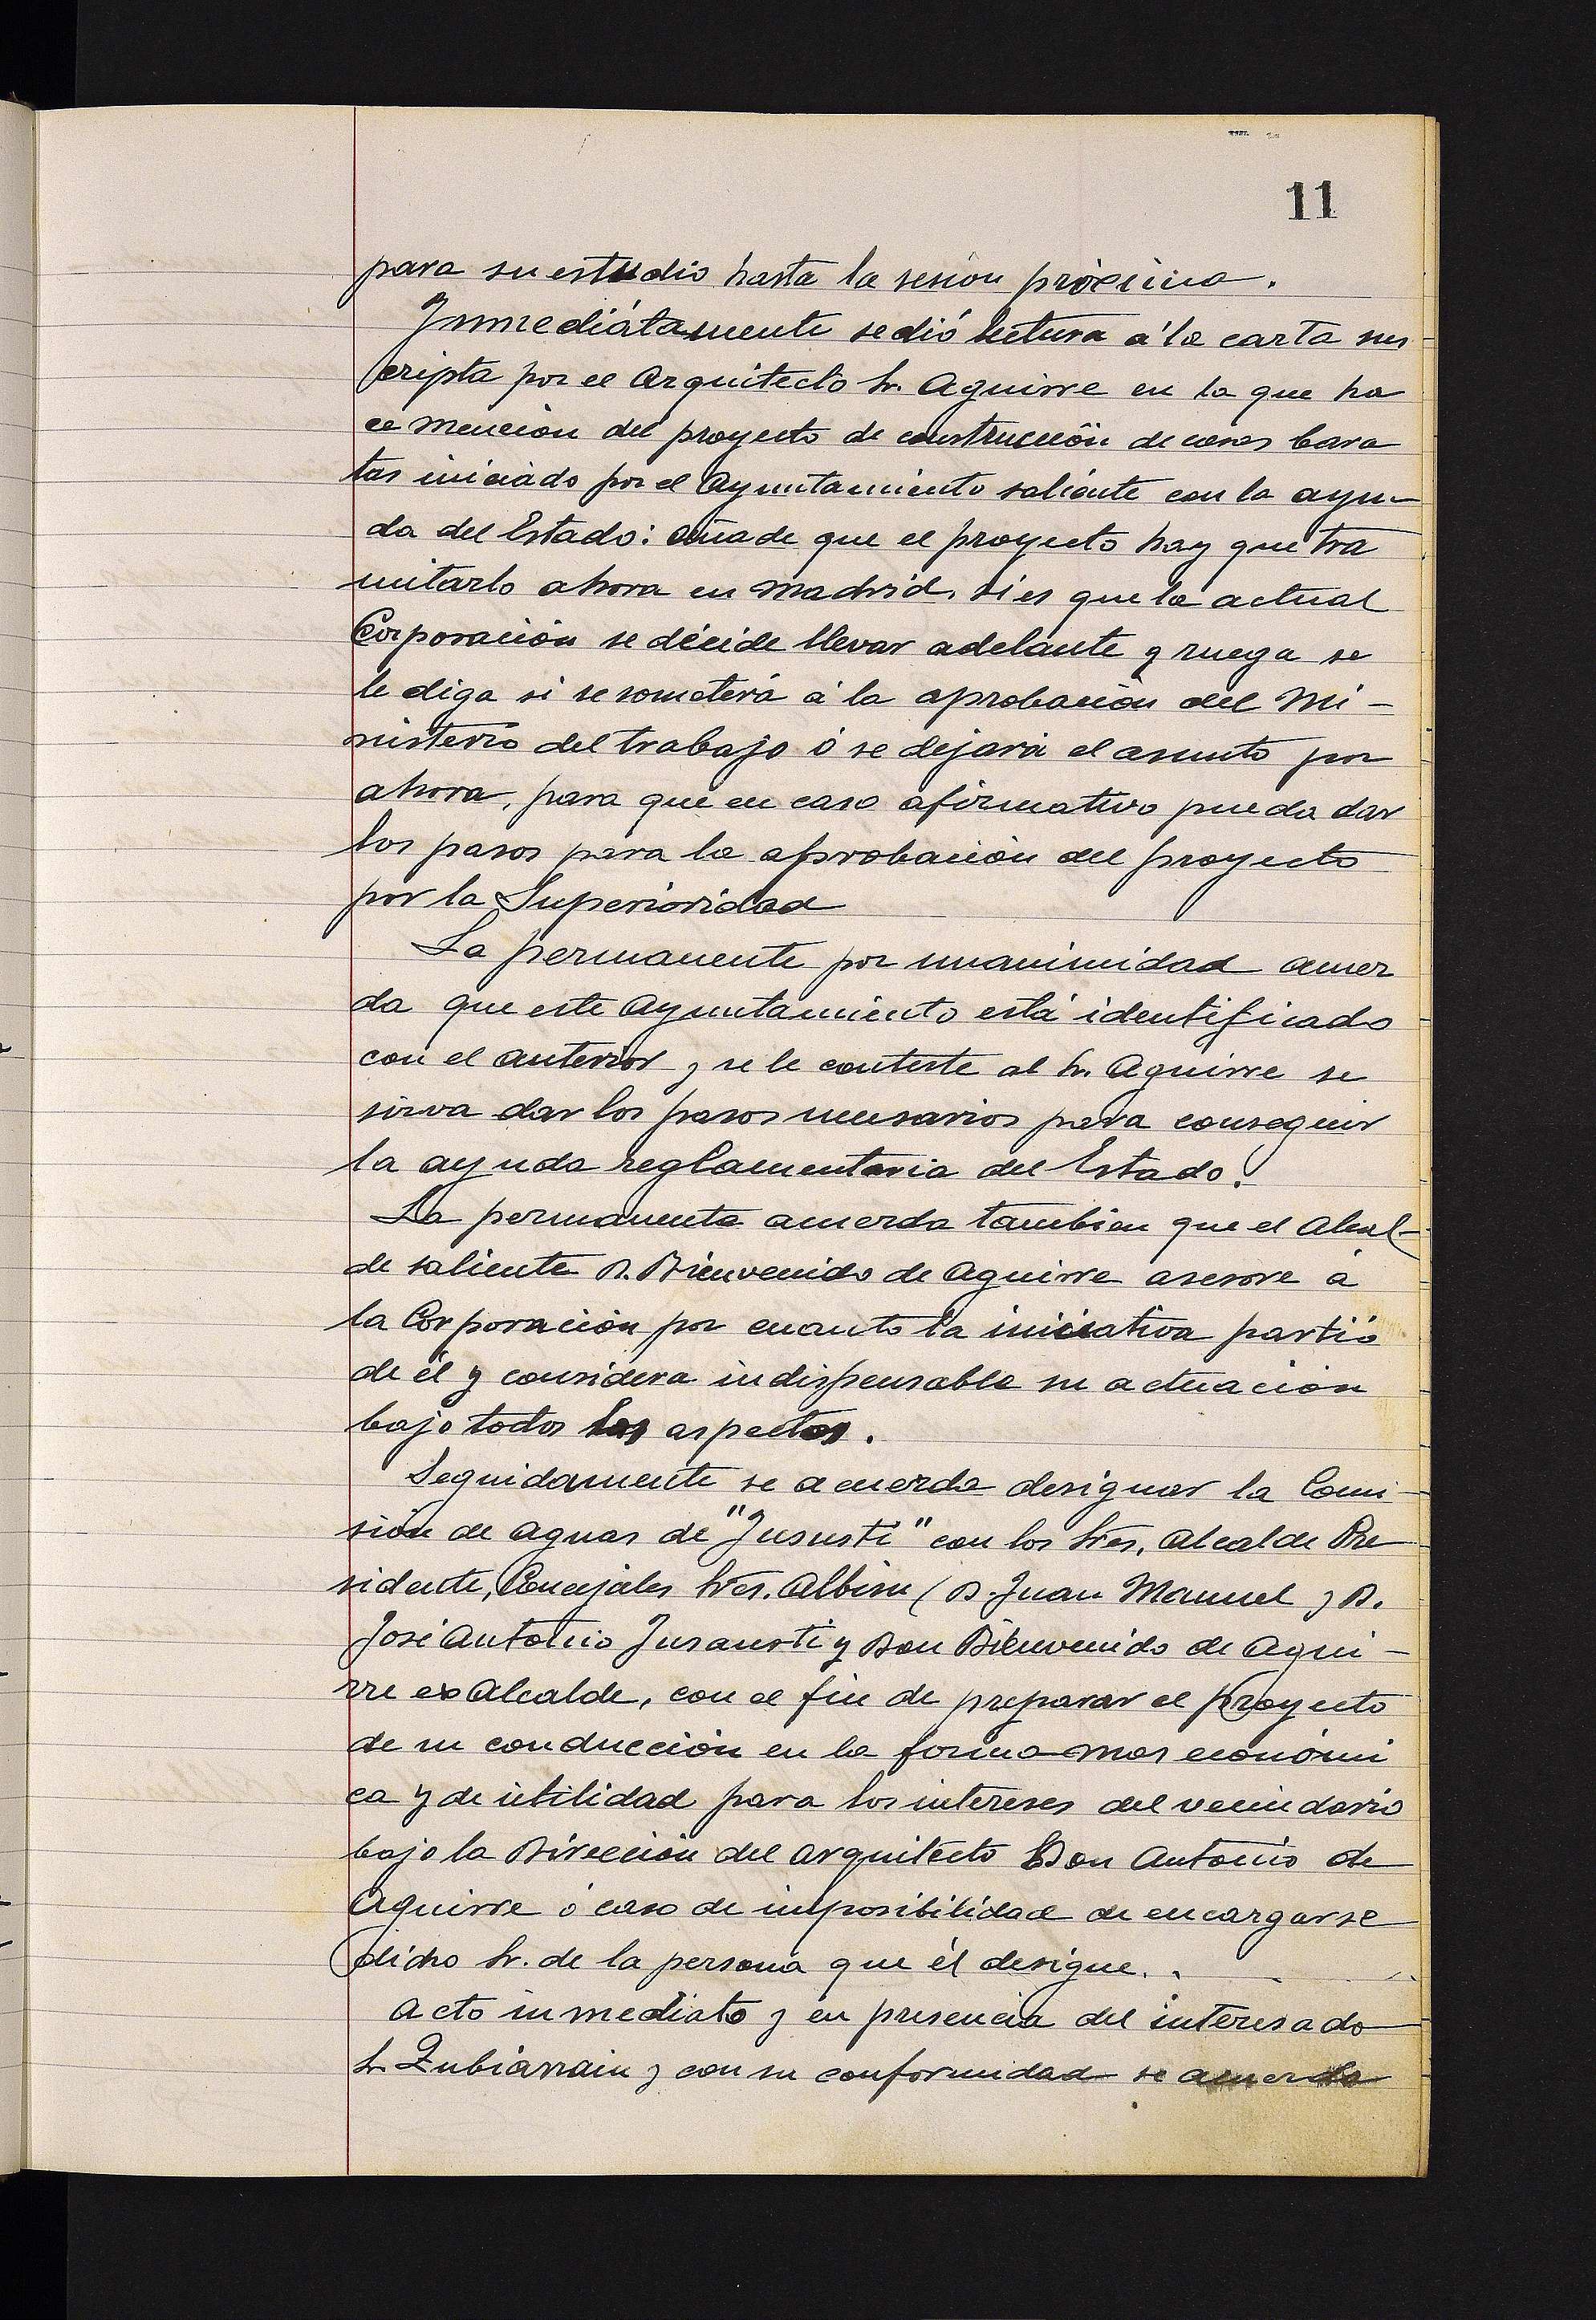 11
para su estudio hasta la sesión próxima.
Inmediátamente se dió lectura á la carta sus
cripta por el Arquitecto Sr. Aguirre en la que ha
ce mención del proyecto de construcción de casas bara
tas iniciado por el Ayuntamiento saliente con la ayu-
da del Estado: añade que el proyecto hay que tra
mitarlo ahora en Madrid, si es que la actual
Corporación se décide llevar adelante y ruega se
le diga si se someterá á la aprobación del Mi-
nisterio del trabajo ó se dejará el asunto por
ahora, para que en caso afirmativo pueda dar
los pasos para la aprobación del proyecto
por la Superioridad
La permanente por unanimidad acuer
da que este Ayuntamiento está identificado
con el anterior y se le conteste al Sr. Aguirre se
sirva dar los pasos necesarios para conseguir
la ayuda reglamentaria del Estado.
La permanente acuerda tambien que el Alcal-
de saliente D. Bienvenido de Aguirre asesore á
la Corporación por cuanto la iniciativa partió
de él y considera indispensable su actuación
bajo todos los aspectos.
Seguidamente se acuerda designar la Comi-
sión de aguas de "Jususti" con los Sres. Alcalde Pre
sidente, Concejales Sres. Albisu (D. Juan Manuel y D.
José Antonio Jusausti y Don Bienvenido de Agui-
rre ex Alcalde, con el fin de preparar el proyecto
de su conducción en la forma mas económi
ca y de utilidad para los intereses del vecindario
bajo la Dirección del arquitecto Don Antonio de
Aguirre ó caso de imposibilidad de encargarse
dicho Sr. de la persona que él designe.
Acto inmediato y en presencia del interesado
Sr Zubiarrain y con su conformidad se acuerda